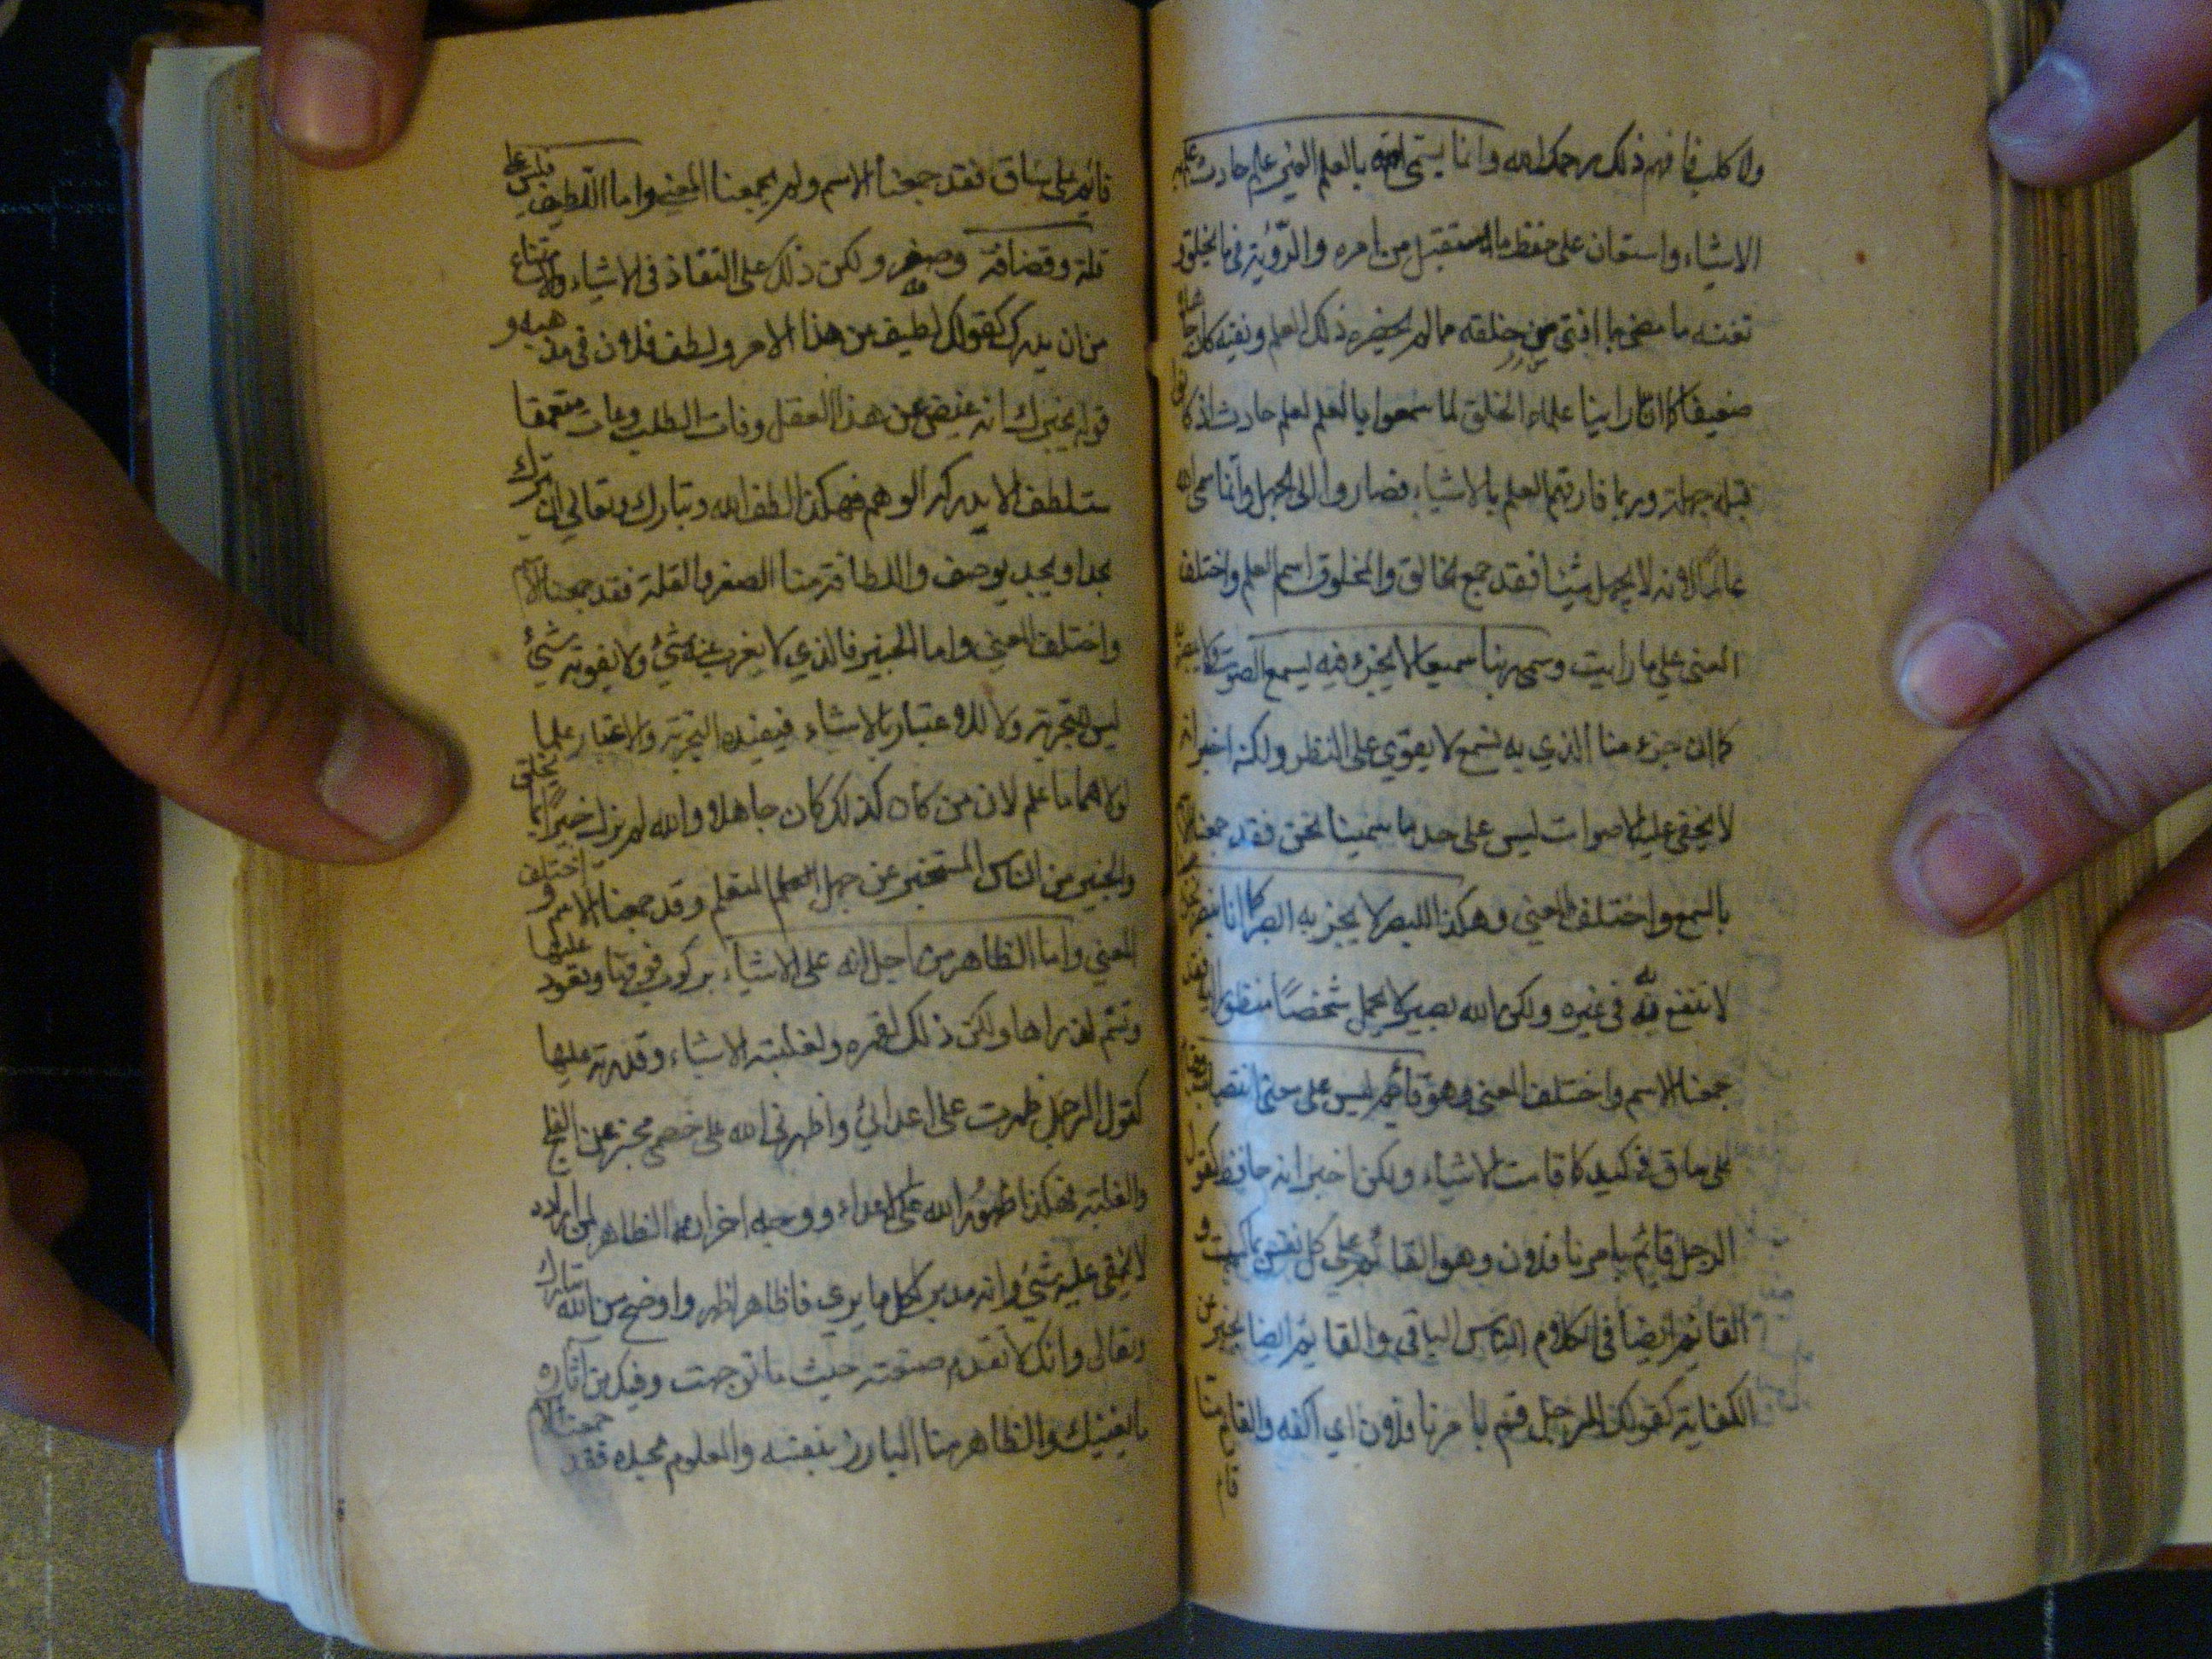 ولا كلب فافهم ذلك رحمك الله وانما يسمى الله بالعلم لغير علم حادث علم به
الاشياء واستعان على حفظ ما يستقبل من امره والروية فيما يخلق و
ما مضى مما افنى من خلقه مما لو لم يحضره ذلك العلم
ضعيفا كما انا راينا علماء الخلق لما سموا بالعلم لعلم حادث اذ كا
قبله جهلة وربما فارقهم العلم بالاشياء فصاروا الى الجهل وانما سمى الله
عالما لانه لا يجهل شيئا فقد جمع الخالق والمخلوق اسم العلم واختلف
المعنى على ما رايت وسمى ربنا سميعا لا بجزء فيه يسمع الصوت
كما ان جزء منا الذي به نسمع لا يقوي على النظر ولكنه اخبر انه
لا يخفى عليه الاصوات ليس على حد ما سمينا نحن فقد جمعنا الاسم
بالسمع واختلف المعنى وهكذا البصر لا بجزء به ابصر كما انا نبصر
لا ننتفع به في غيره ولكن الله بصير لا يجهل شخصا منظورا اليه فقد
جمعنا الاسم واختلف المعنى وهو قائم ليس على معنى انتصاب
على ساق في كبد كما قامت الاشياء ولكن اخبر انه حافظ كقول
الرجل قايم بامرنا فلان وهو القائم على كل نفس بما كسبت و
القائم ايضا في كلام الناس الباقى والقايم ايضا يخبر عن
الكفاية كقولك للرجل قم بامر فلان اي اكفه والقائم منا
قائم
قائم على ساق فقد جمعنا الاسم ولم يجمعنا المعنى واما اللطيف فليس على
قلة وقضافة وصغر ولكن ذلك على النفاذ فى الاشياء والامتناع
من ان يدرك كقولك لطيف عن هذا الامر ولطف فلان فى مذهبه و
قوله يخبرك انه غمض عن هذا العقل وفات الطلب وعاد متعمقا
متلطفا لا يدركه الوهم فهكذا لطف الله تبارك وتعالى ان يدرك
بحد او يحد بوصف واللطافة منا الصغر والقلة فقد جمعنا الاسم
واختلف المعنى واما الخبير فالذي لا يعزب عنه شئ ولا يفوته شئ
ليس للتجربة ولا للاعتبار بالاشياء فيفيده التجربة والاعتبار علما
لولاهما ما علم لان من كان كذلك كان جاهلا والله لم يزل خبيرا بما يخلق
والخبير من الناس المستخبر عن جهل المتعلم وقد جمعنا الاسم واختلف
المعنى واما الظاهر من اجل انه على الاشياء بركوب فوقها وقعود عليها
وتسنم لذراها ولكن ذلك لقهره ولغلبته الاشياء وقدرته عليها
كقول الرجل ظهرت على اعدائي واظهرنى الله على خصمى يخبر عن الفلج
والغلبة فهكذا ظهور الله على الاعداء ووجه اخر انه الظاهر لمن اراده
لا يخفى عليه شئ وانه مدبر لكل ما يرى فاى ظاهر اظهر واوضح من الله تبارك
وتعالى وانك لا تعدم صنعته حيث ما توجهت وفيك من آثاره
ما يغنيك والظاهر منا البارز بنفسه والمعلوم بحده فقد جمعنا الاسم